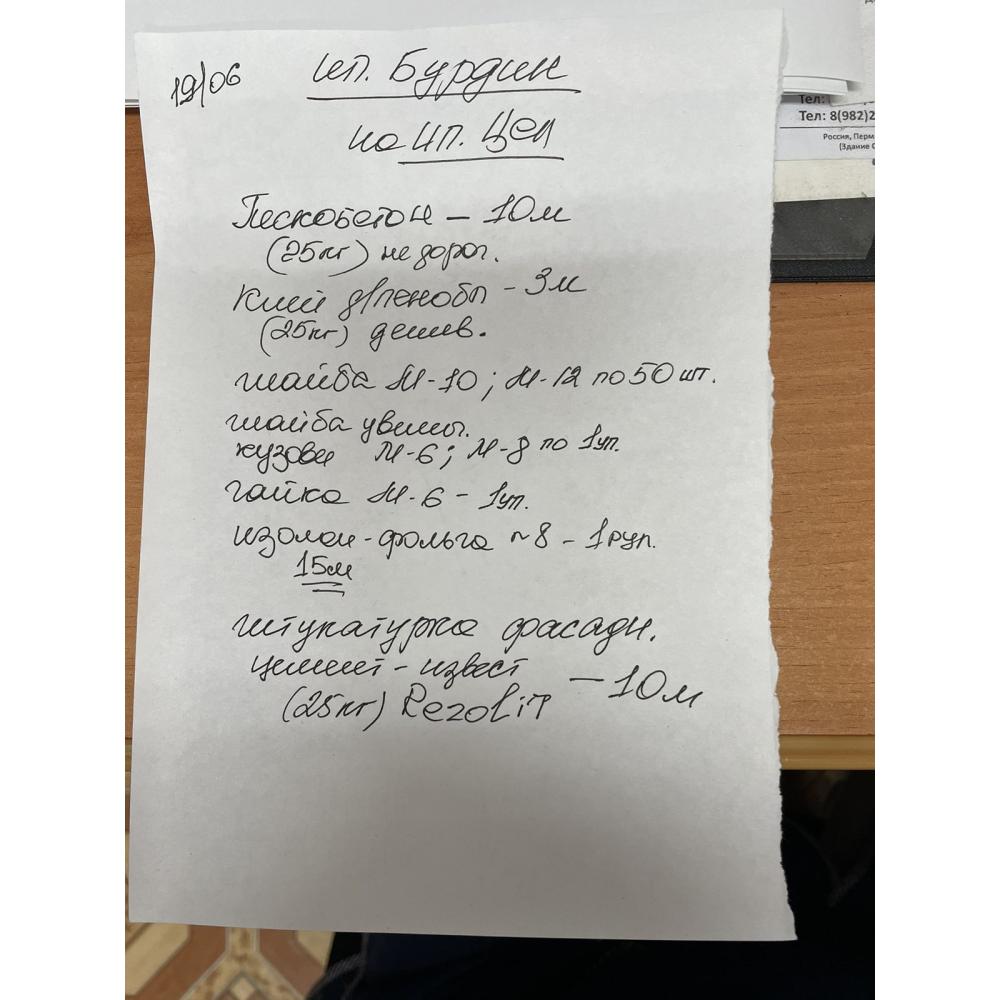 19/06
ип. Бурдин
на ип. Цеп
Пескобетон - 10м
(25кг) недорог.
Клей д/пенобл - 3м
(25кг) дешев.
шайба М-10; М-12 по 50 шт.
шайба увелич.
кузовн М-6; М-8 по 1уп.
гайка М-6 - 1уп.
изолон-фольга ~8 - 1рул.
15м
штукатурка фасадн.
цемент-извест
(25кг) Rezolit - 10м
Тел:
Тел: 8(982)2
Россия, Перм
(Здание